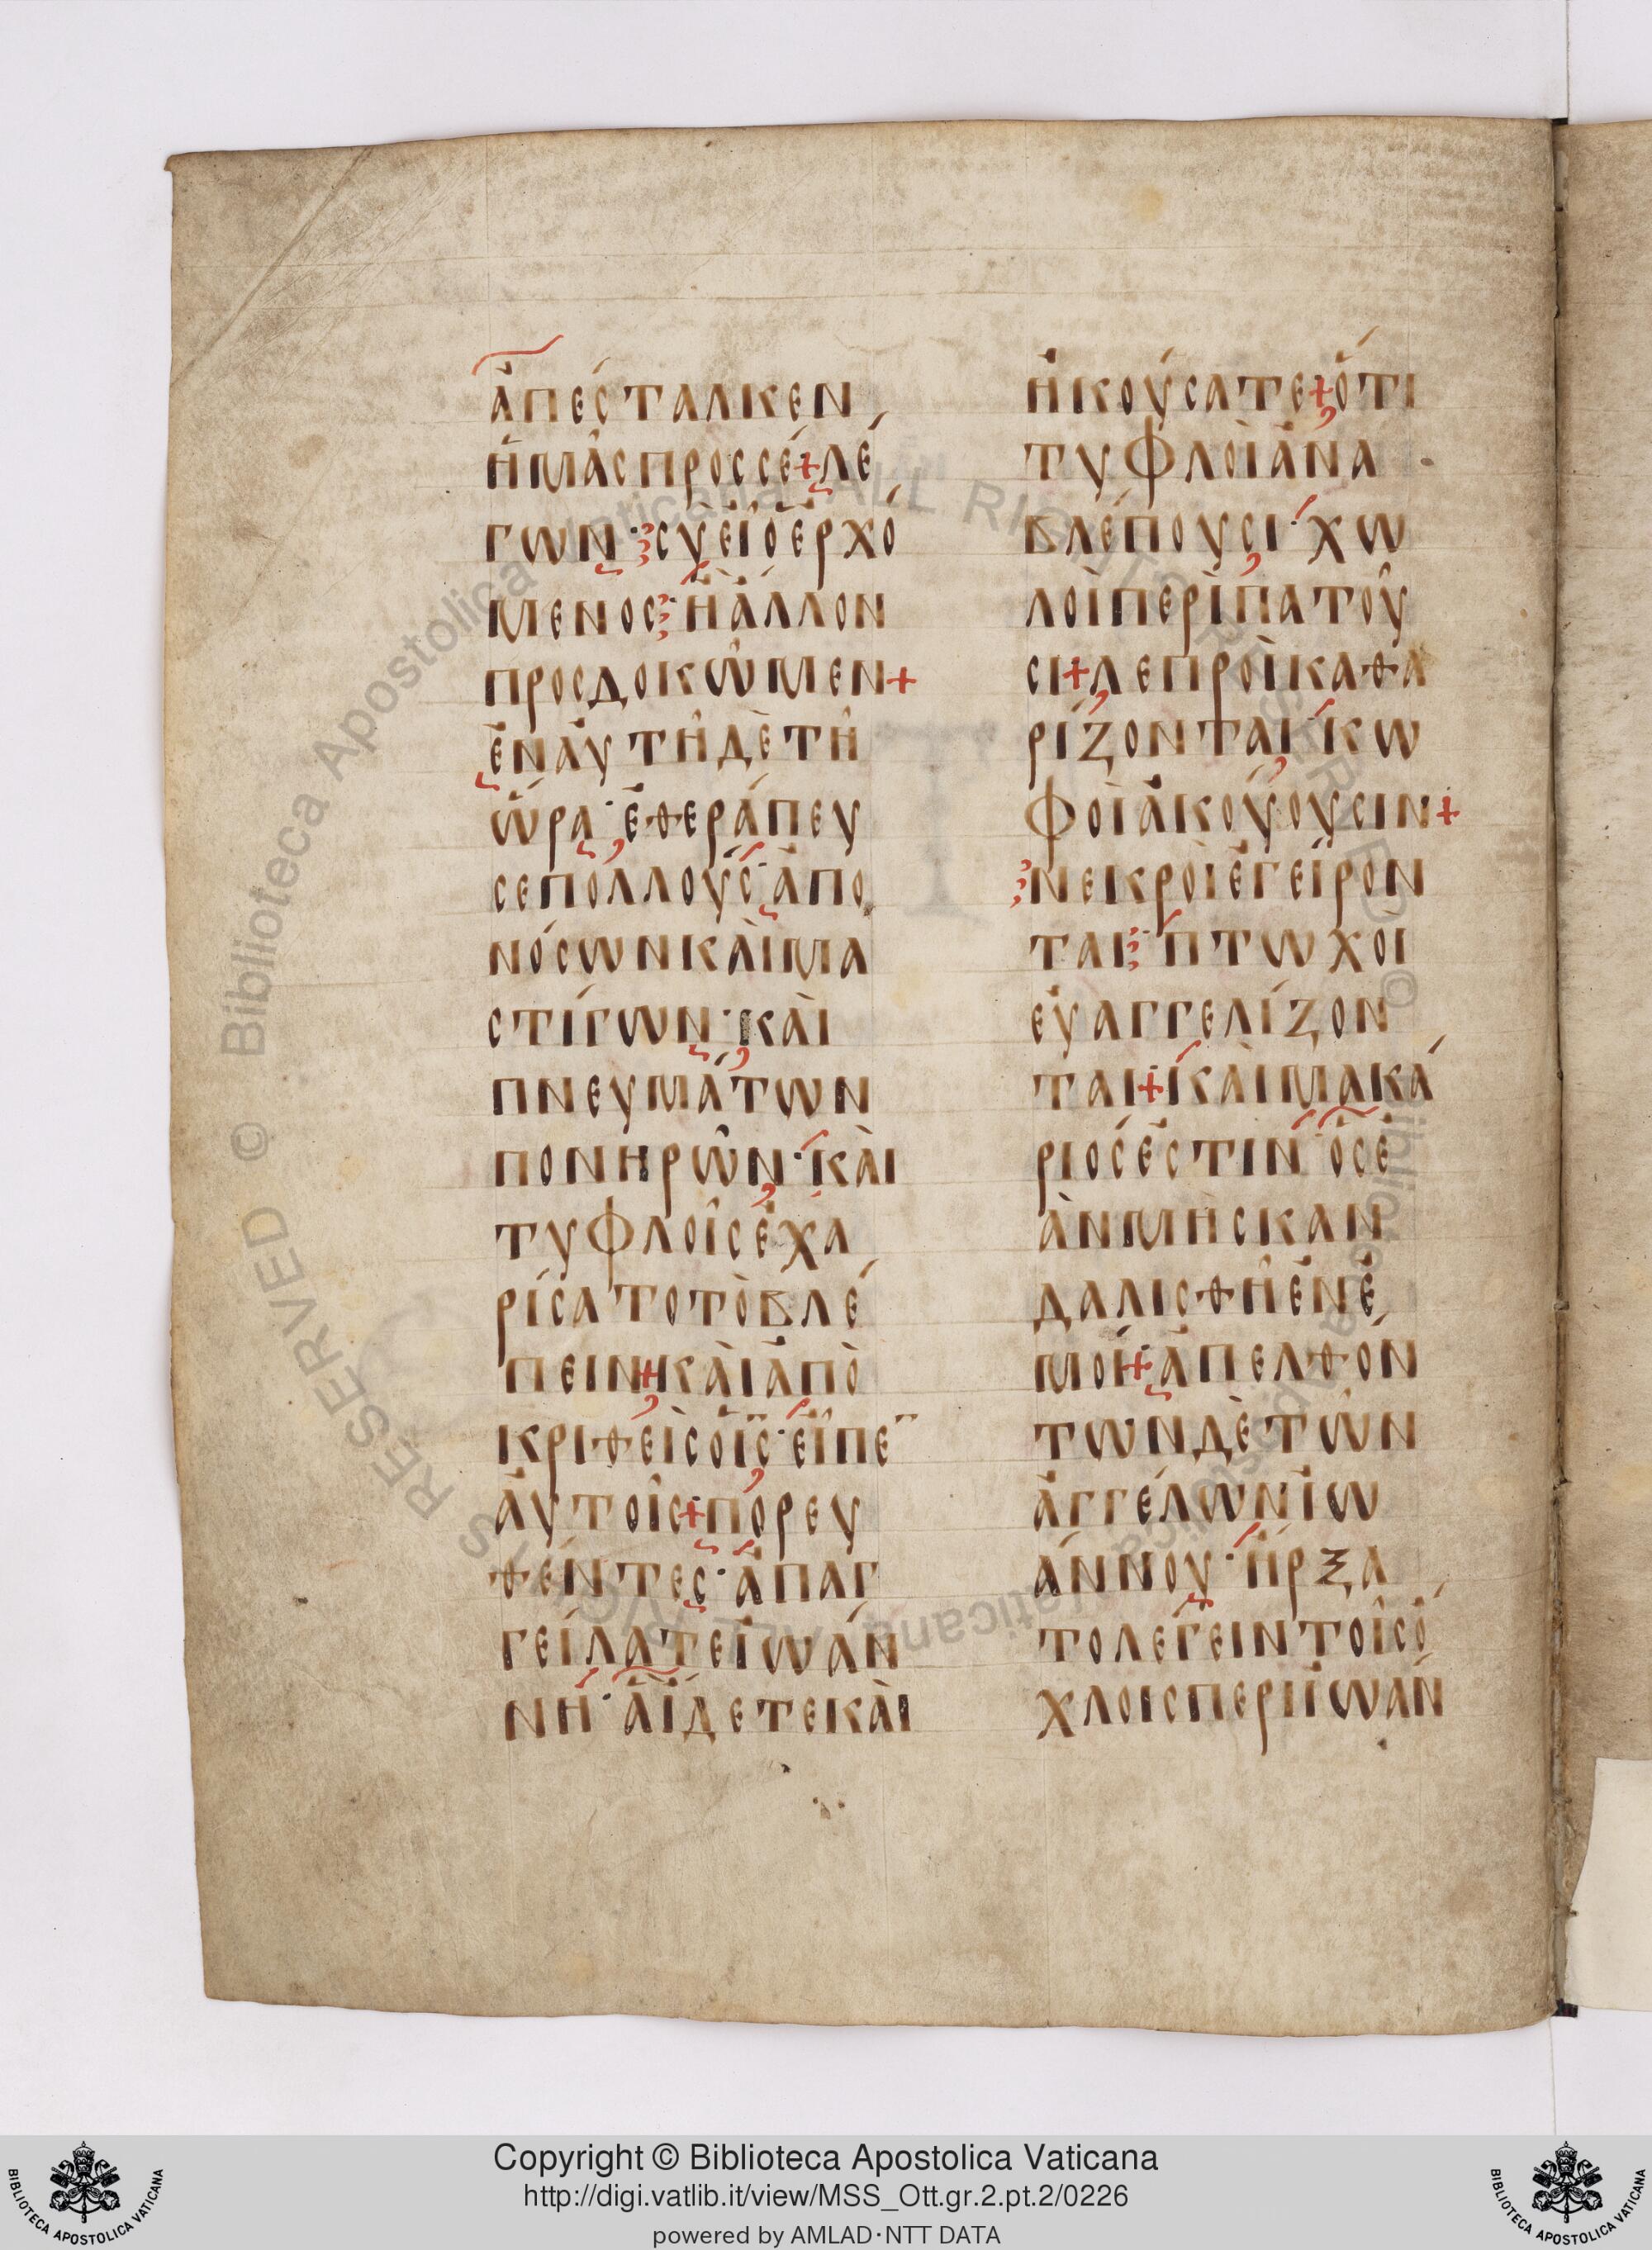 ἀπέσταλκεν
ἡμᾶς προς σέ + λέ
γων · σὺ εἶ ὁ ἐρχό
μενος · ἢ ἄλλον
προσδοκῶμεν +
ἐν αὐτῆ δὲ τῆ
ὥρα · ἐθεράπευ
σε πολλοὺς · ἀπο
νόσων καὶ μα
στίγων · καὶ
πνευμάτων
πονηρῶν · καὶ
τυφλοῖς ἐχα
ρίσατο τὸ βλέ
πειν + καὶ ἀπὸ
κριθεὶς ὁ ῑς̄ · εἶπεν
αὐτοῖς + πορευ
θέντες · ἀπαγ
γείλατε ἰωάν
νη · ἃ ἴδετε καὶ
ἠκούσατε + ὅτι
τυφλοὶ ἀνα
βλέπουσι · χω
λοὶ περιπατοῦ
σι + λεπροὶ καθα
ρίζονται · κω
φοὶ ἀκούουσιν +
νεκροὶ ἐγείρον
ται · πτωχοὶ
εὐαγγελίζον
ται + καὶ μακά
ριός ἐστιν ὃς ἐ
ὰν μὴ σκαν
δαλισθῆ ἐν ἐ
μοί + ἀπελθόν
των δὲ τῶν
ἀγγέλων ἰω
άννου · ἤρξα
το λέγειν τοῖς ὄ
χλοις περὶ ἰωάν
Copyright © Biblioteca Apostolica Vaticana
http://digi.vatlib.it/view/MSS_Ott.gr.2.pt.2/0226
powered by AMLAD·NTT DATA
BIBLIOTECA APOSTOLICA VATICANA
BIBLIOTECA APOSTOLICA VATICANA
© Biblioteca Apostolica Vaticana ALL RIGHTS RESERVED © Biblioteca Apostolica Vaticana ALL RIGHTS RESERVED